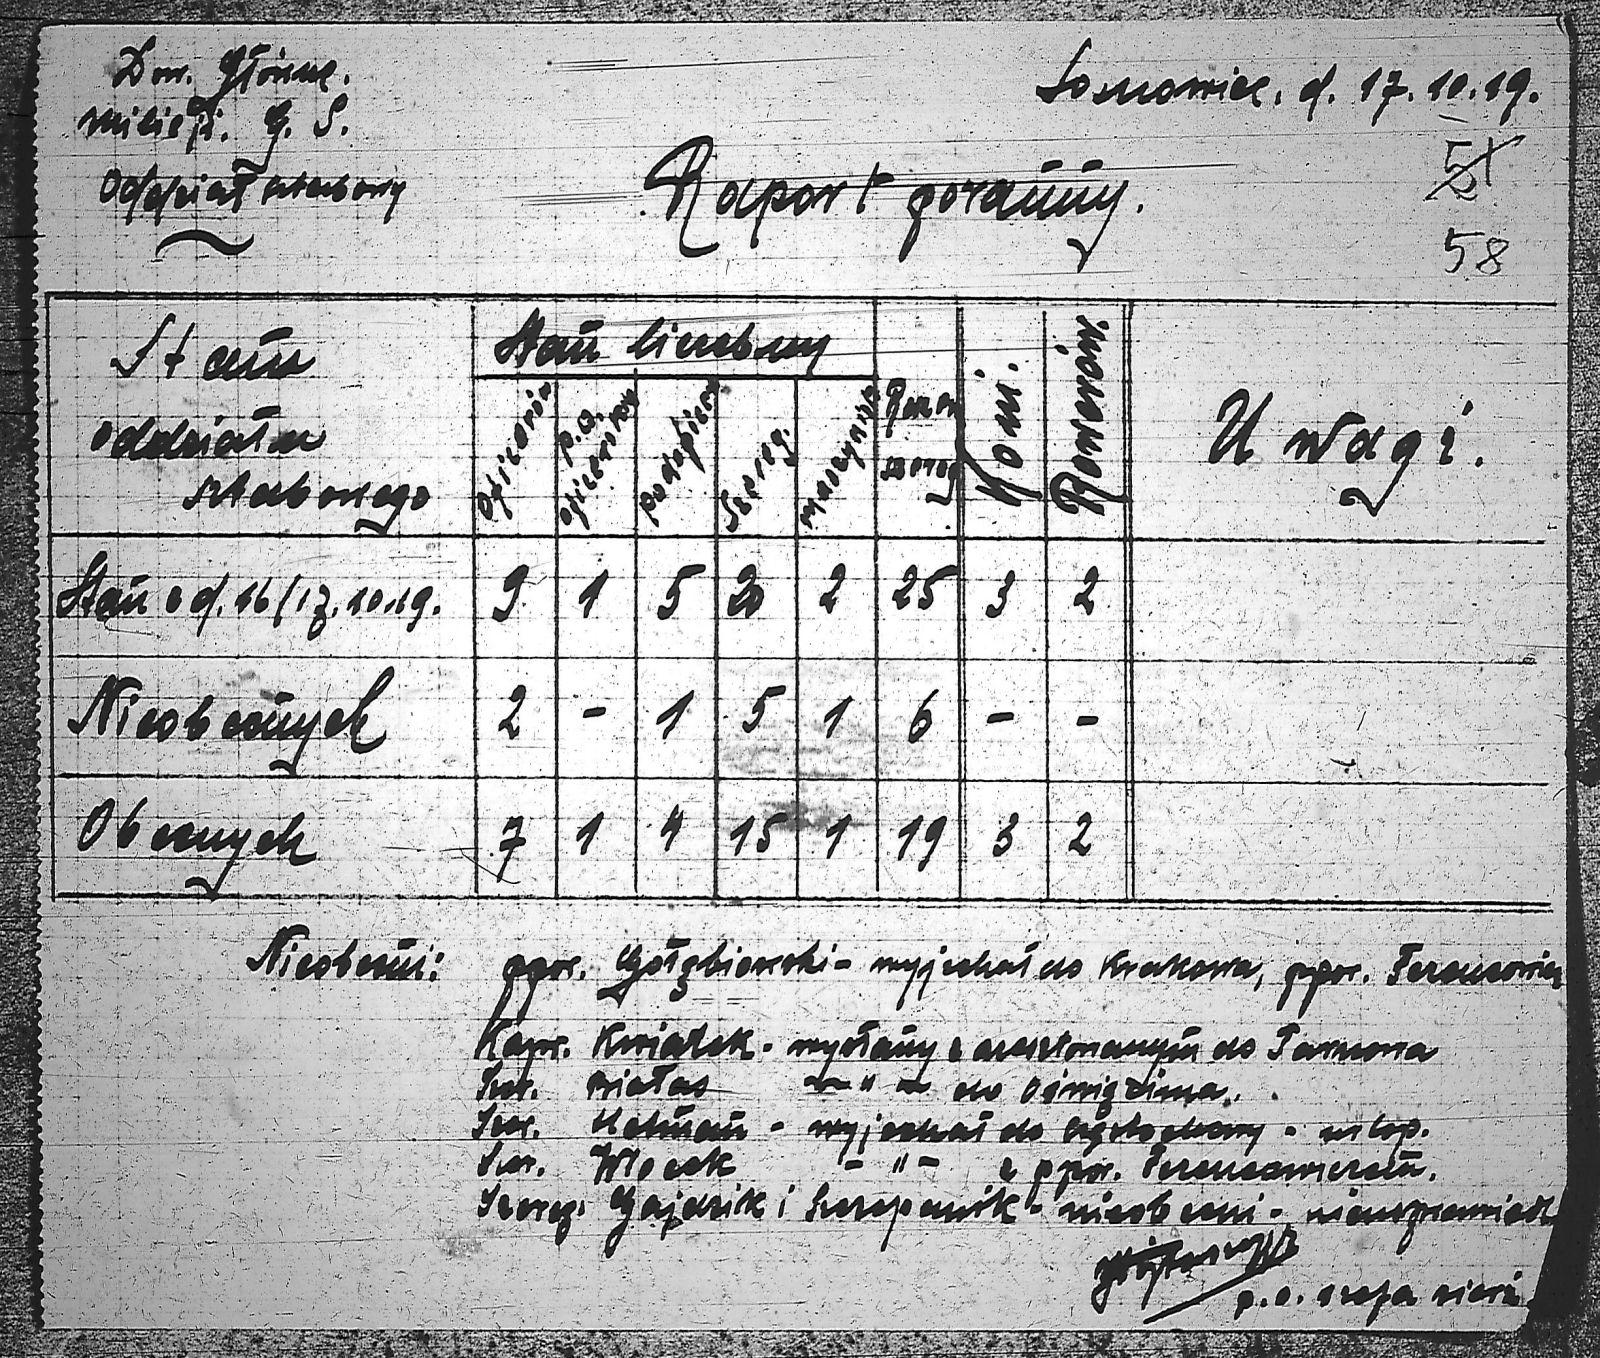 Dow. Główne.
Milicji. G. S.
Oddział sztabowy
Sosnowiec. d. 17.10.19.
51
58
Raport poranny.
Stan
oddziału
sztabowego
Stan liczebny
Oficerów
p.o. oficerów
podoficer
Szereg.
maszynist
Razem
szereg
Koni.
Rowerów.
Uwagi.
Stan z d. 16/17.10.19. 9 1 5 20 2 25 3 2
Nieobecnych 2 - 1 5 1 6 - -
Obecnych 7 1 4 15 1 19 3 2
Nieobecni: ppor. Gołębiowski - wyjechał do Krakowa, ppor. Ferencowicz
Kapr. Kwiatek - wysłany z aresztowanym do Tarnowa
Szer. Białas -"- do Oświęcima.
Szer. Hetman - wyjechał do Częstochowy - urlop.
Szer. Włosek - "- z ppor.
Szereg. Gajdzik i Szczepanik - nieobecni - nieusprawiedl
p.o. szefa